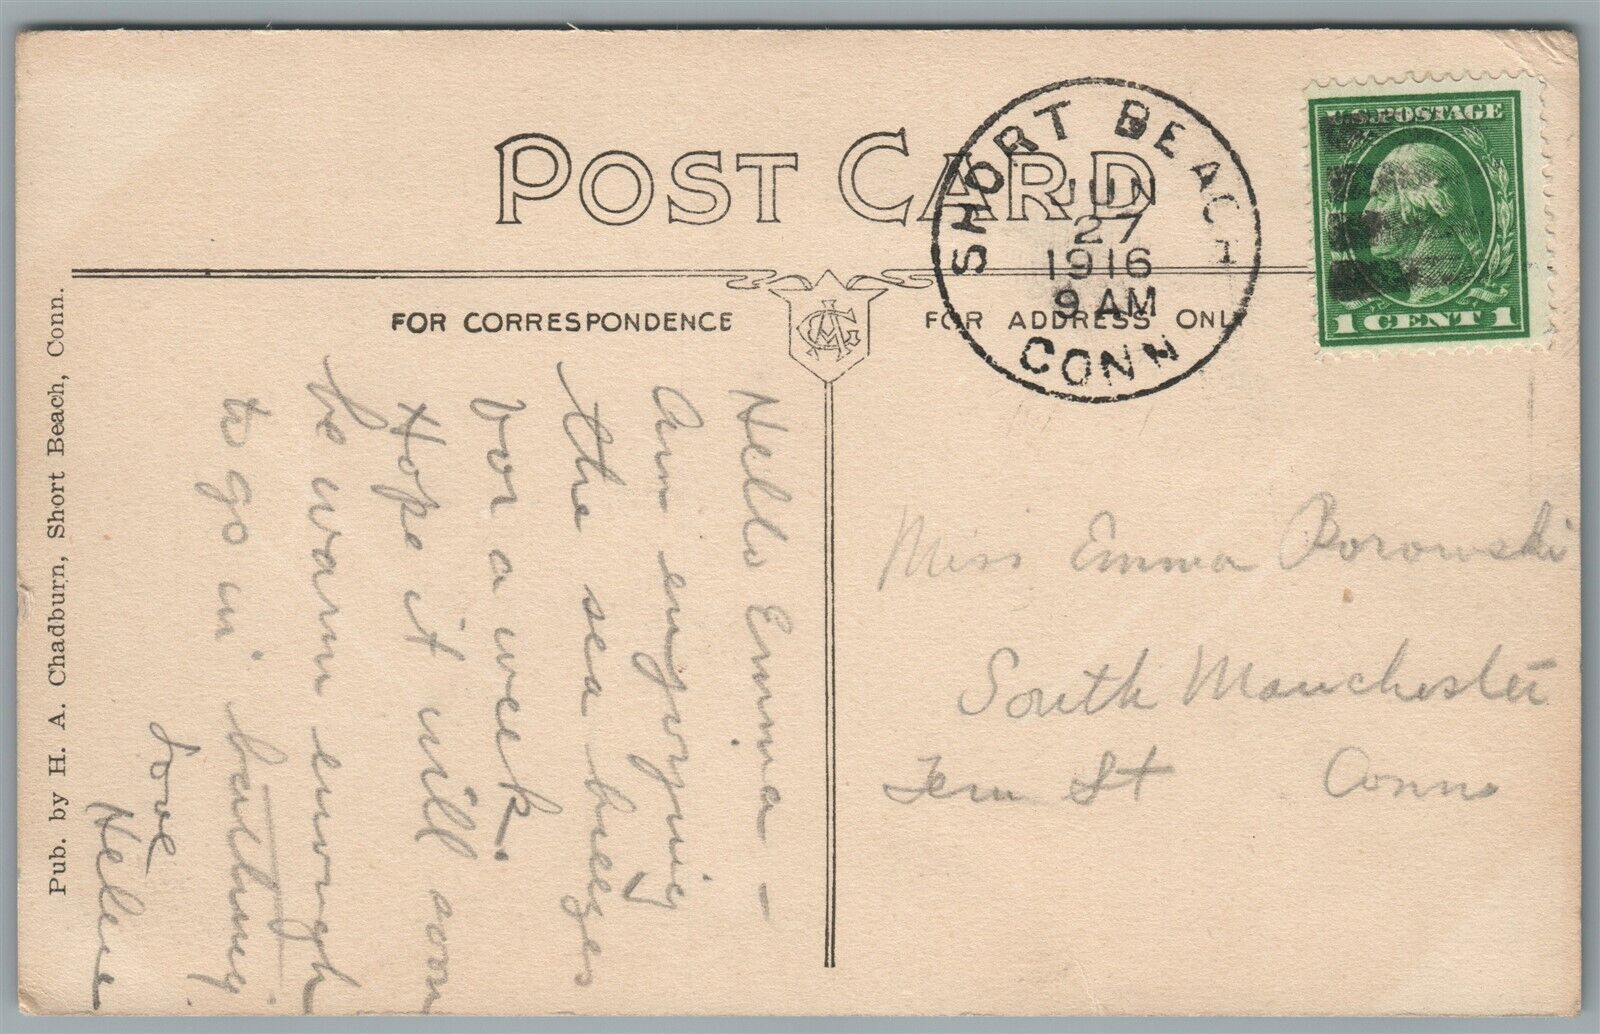 POST CARD
SHORT BEACH
JUN
27
1916
9 AM
CONN
U.S. POSTAGE
1 CENT 1
FOR CORRESPONDENCE
FOR ADDRESS ONLY
Pub. by H. A. Chadburn, Short Beach, Conn.
Hello Emma –
Am enjoying
the sea breezes
for a week.
Hope it will soon
be warm enough
to go in bathing
Love
Helene
Miss Emma Borowski
South Manchester
St Conn